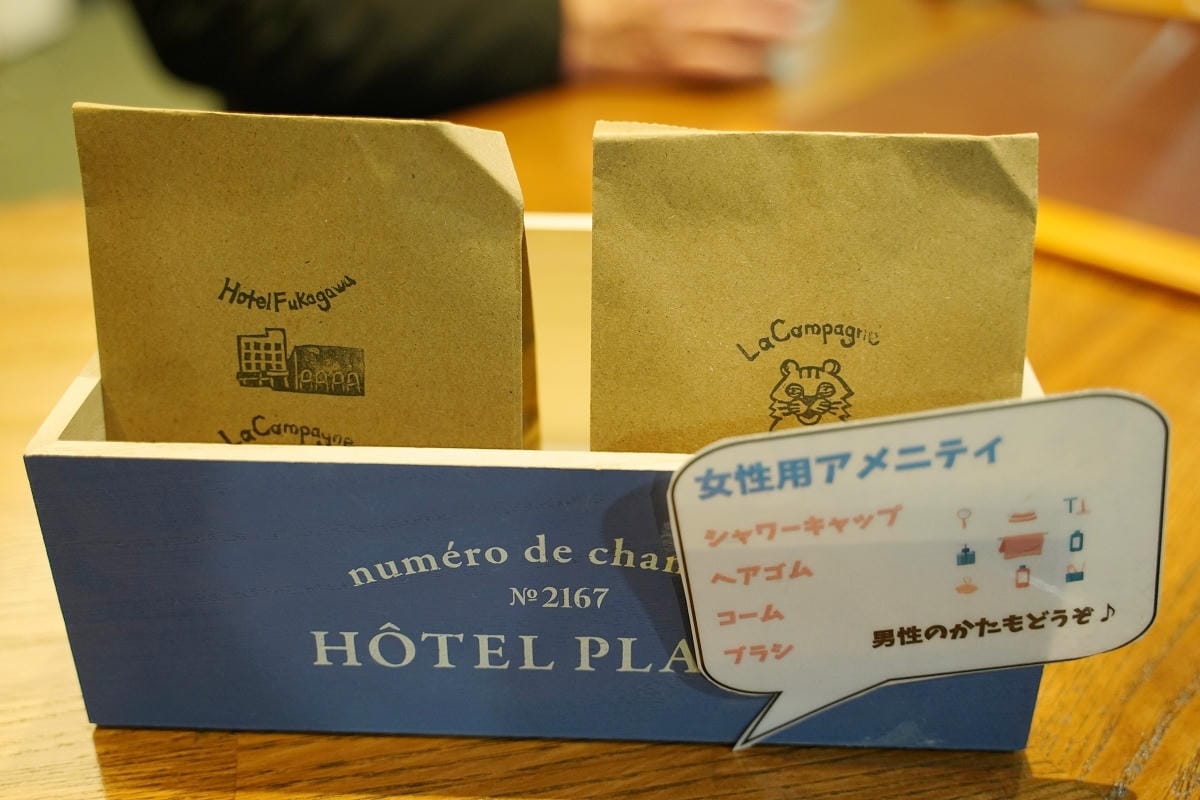 Hotel Fukagawa
La Campagne
La Campagne
numéro de
№2167
HÔTEL
女性用アメニティ
シャワーキャップ
ヘアゴム
コーム
ブラシ
男性のかたもどうぞ♪